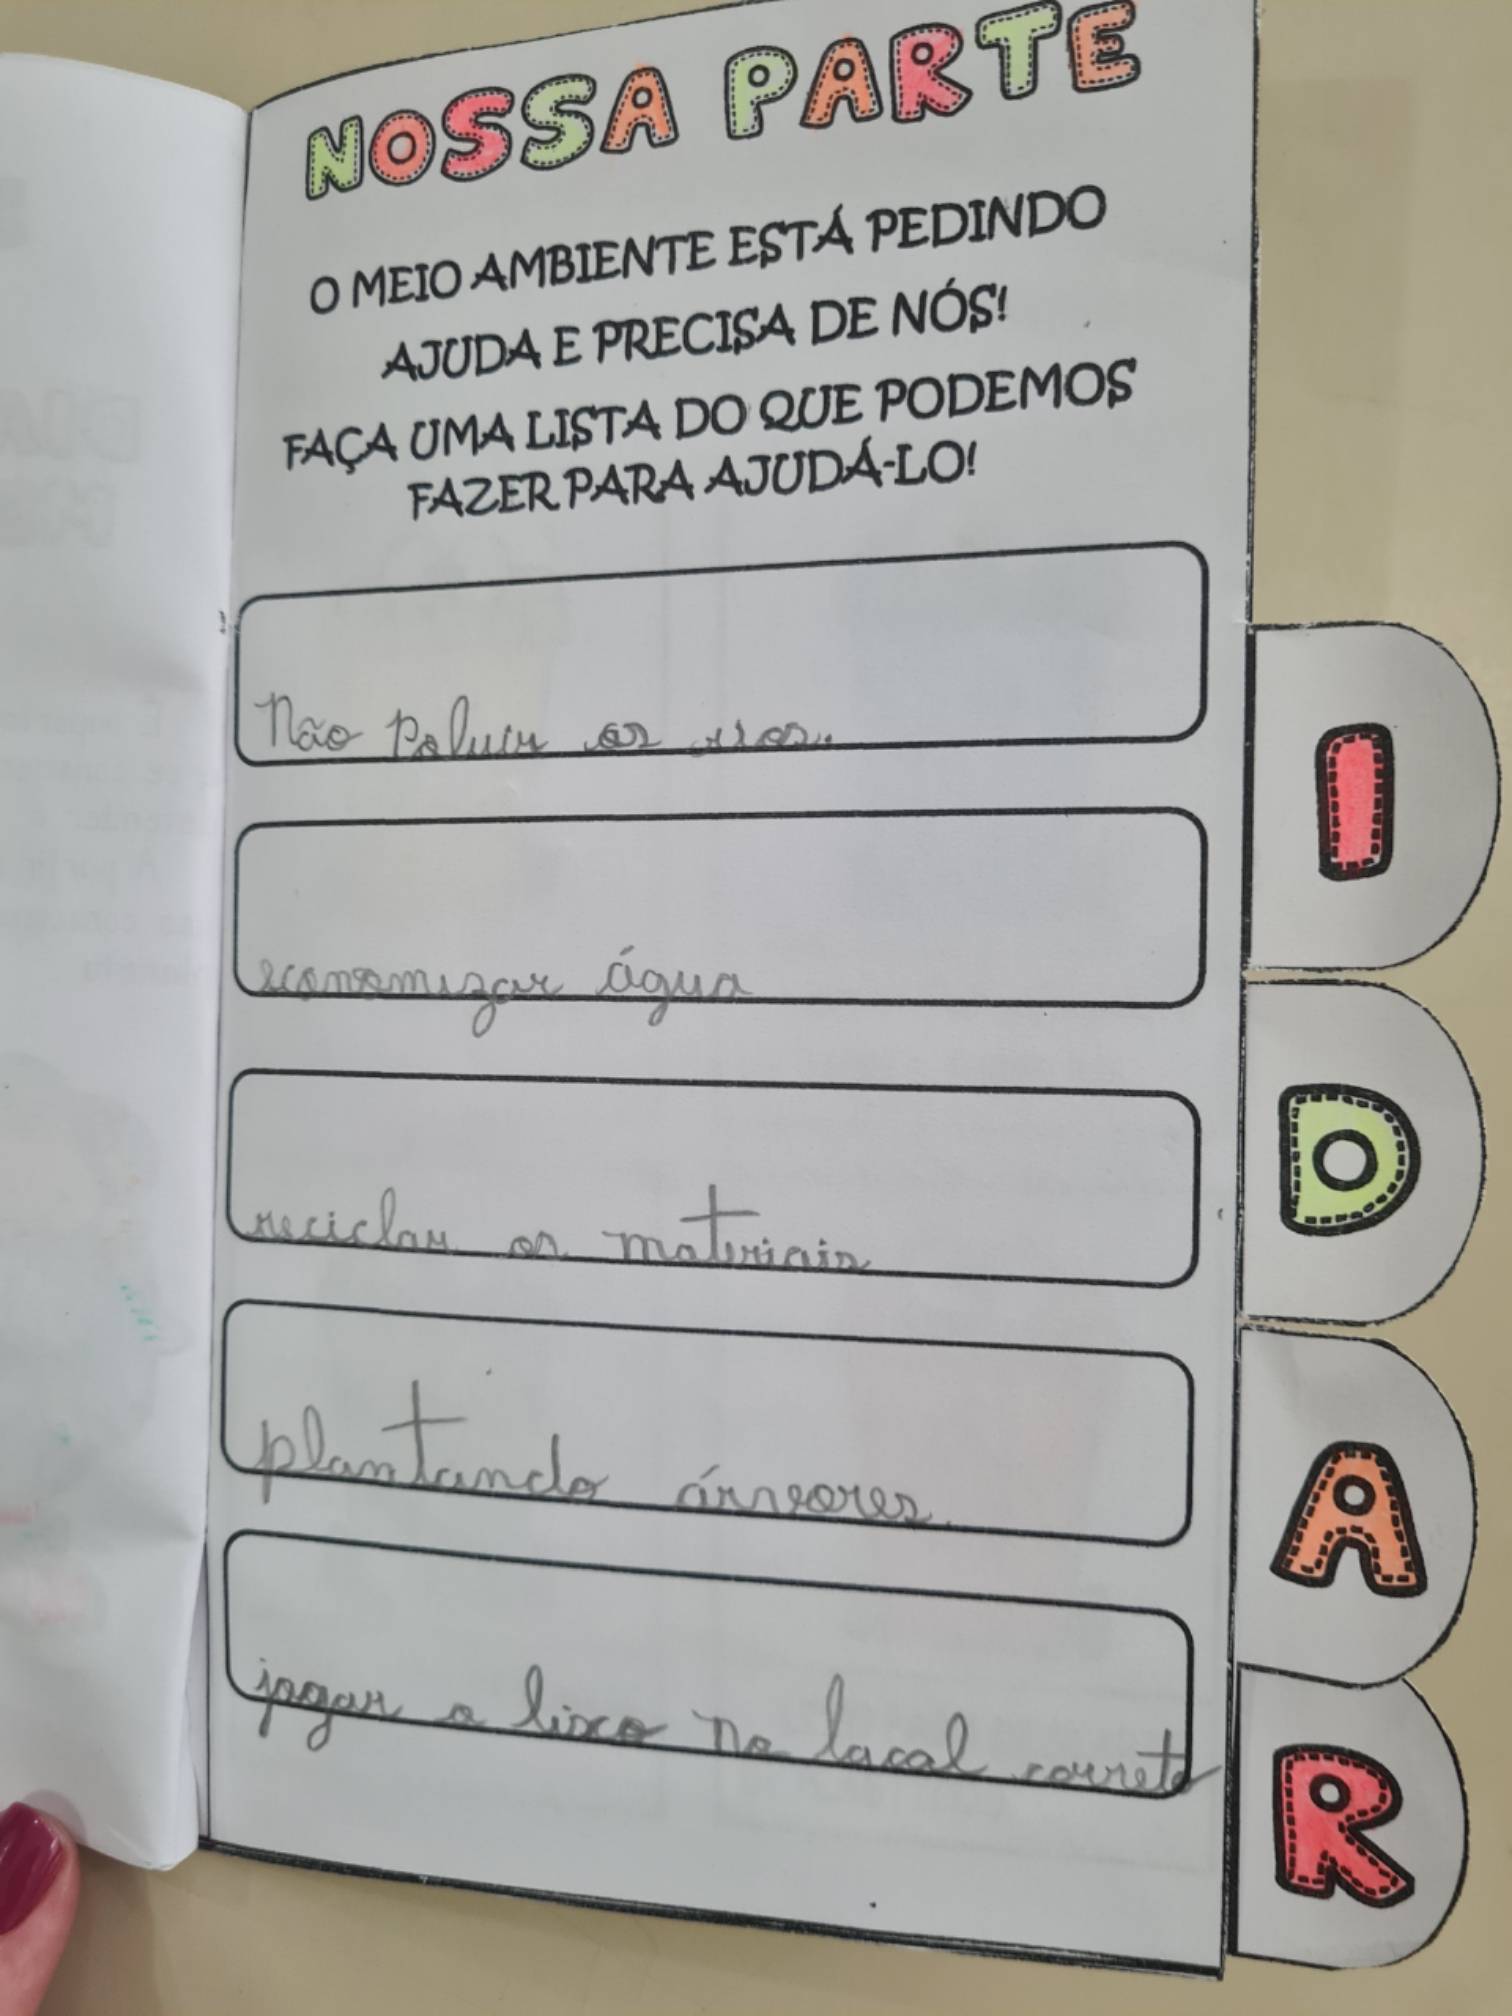 NOSSA PARTE
O MEIO AMBIENTE ESTÁ PEDINDO
AJUDA E PRECISA DE NÓS!
FAÇA UMA LISTA DO QUE PODEMOS
FAZER PARA AJUDÁ-LO!
Não Poluir os rios.
economizar água
reciclar os materiais
plantando árvores.
jogar o lixo no local correto
I
D
A
R